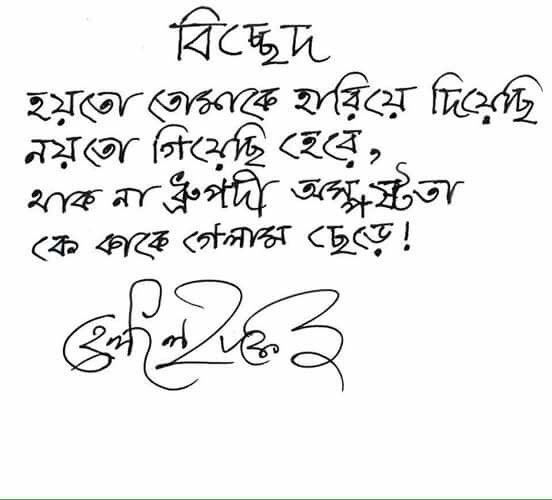 বিচ্ছেদ
হয়তো তোমাকে হারিয়ে দিয়েছি
নয়তো গিয়েছি হেরে,
থাক না ধ্রুপদী অস্পষ্টতা
কে কাকে গেলাম ছেড়ে!
হেলাল হাফিজ